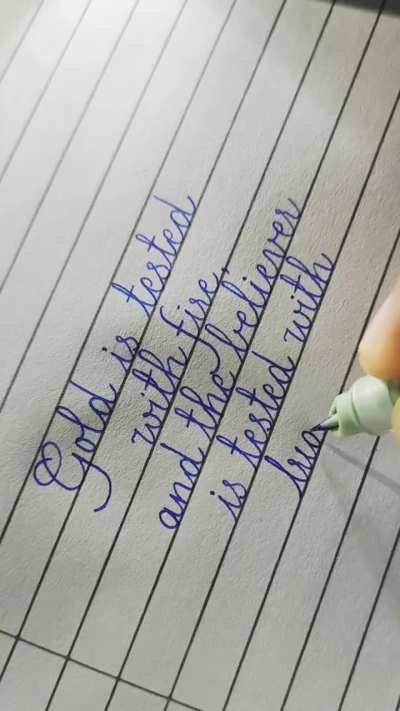 Gold is tested
with fire,
and the believer
is tested with